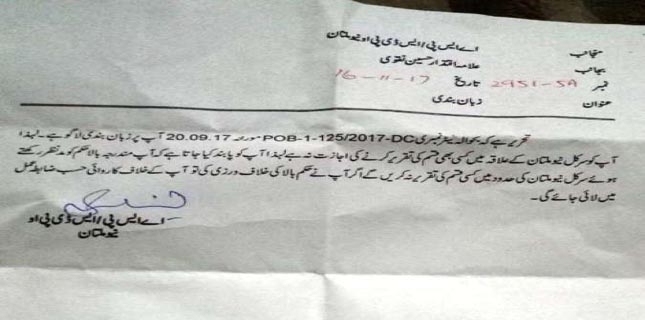 منجانب اے ایس پی/ایس ڈی پی او نیوملتان
بجانب علامہ اقتدار حسین نقوی
نمبر 2951-5A تاریخ 16-11-17
عنوان زبان بندی
تحریر ہے کہ بحوالہ لیٹر نمبری POB-1-125/2017-DC مورخہ 20.09.17 آپ پر زبان بندی لاگو ہے۔ لہذا
آپ کو سرکل نیوملتان کے علاقہ میں کسی بھی قسم کی تقریر کرنے کی اجازت نہ ہے لہذا آپ کو پابند کیا جاتا ہے کہ آپ مندرجہ بالا حکم کو مد نظر رکھتے
ہوئے سرکل نیوملتان کی حدود میں کسی قسم کی تقریر نہ کریں گے اگر آپ نے حکم بالا کی خلاف ورزی کی تو آپ کے خلاف کاروائی حسب ضابطہ عمل
میں لائی جائے گی۔
اے ایس پی/ایس ڈی پی او
نیوملتان